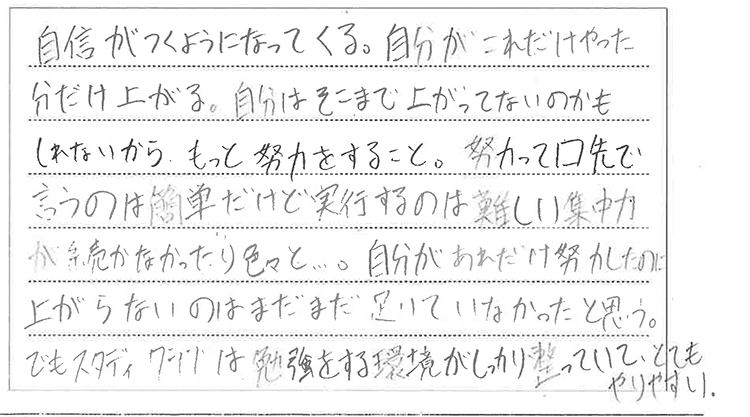 自信がつくようになってくる。自分がこれだけやった
分だけ上がる。自分はそこまで上がってないのかも
しれないから、もっと努力をすること。努力って口先で
言うのは簡単だけど実行するのは難しい集中力
が続かなかったり色々と…。自分があれだけ努力したのに
上がらないのはまだまだ足りていなかったと思う。
でもスタディ は勉強をする環境がしっかり整っていて、とても
やりやすい.